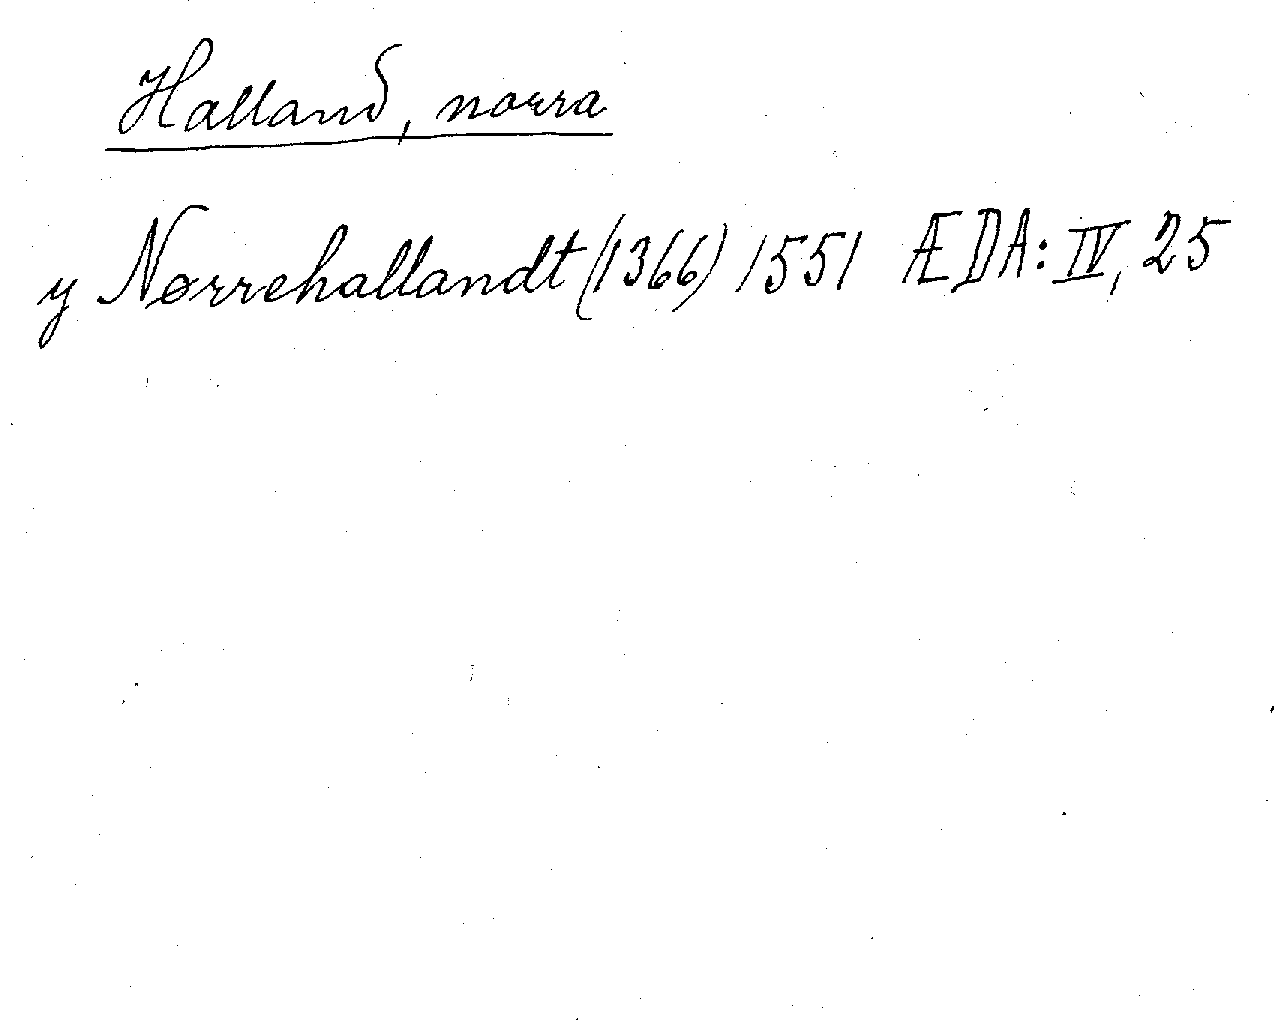 Halland, norra
y Nørrehallandt (1366) 1551 ÆDA: IV, 25